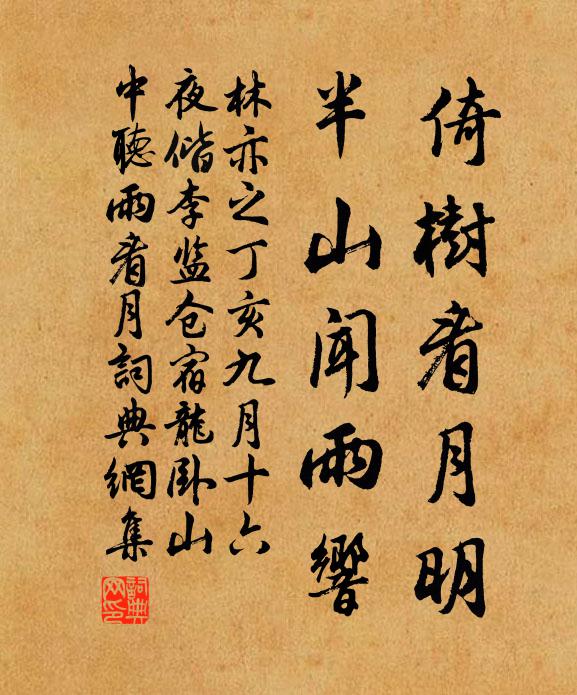 倚樹看月明
半山聞雨響
林亦之丁亥九月十六
夜偕李监仓宿龍卧山
中聽雨看月詞典網集
詞典
网印